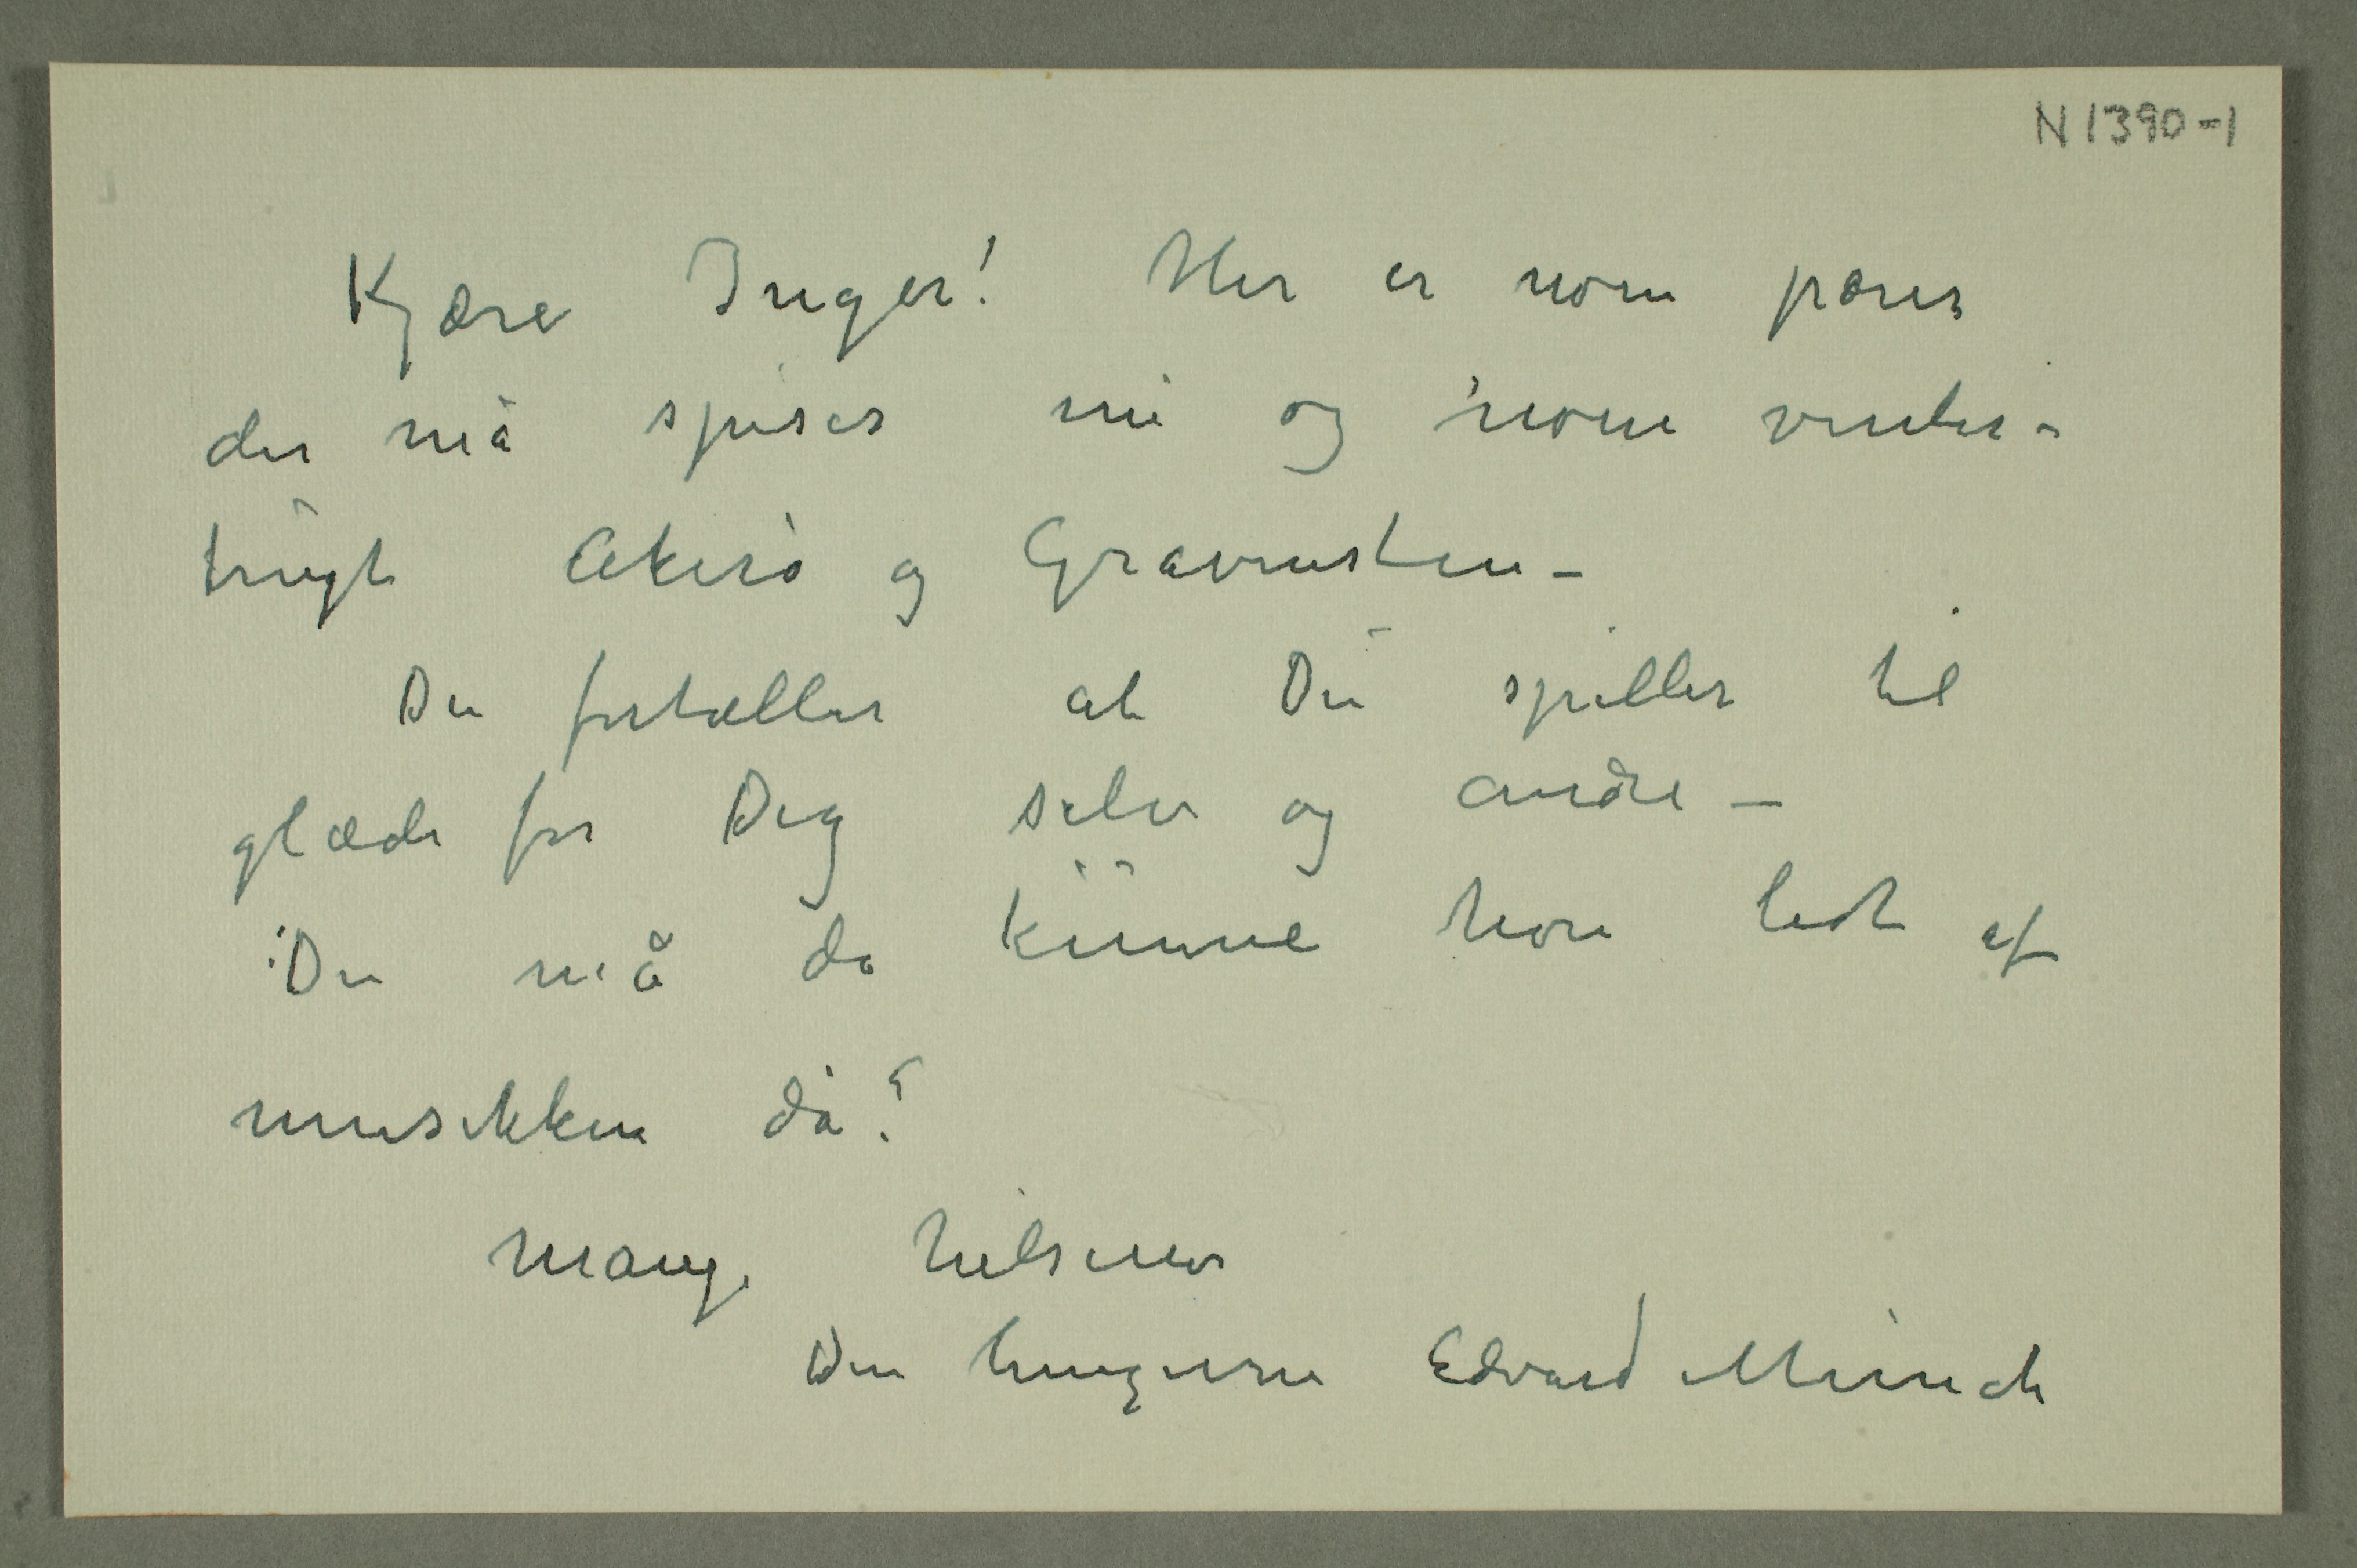 N 1390-1
Kjære Inger! Her er nogen pærer
der må spises nu og nogen vinter-
frugt Akerø og Gravensten –
Du fortæller at Du spiller til
glæde for Dig selv og andre –
Du må da kunne høre lidt af
musikken da?
Mange hilsener
Din hengivne Edvard Munch